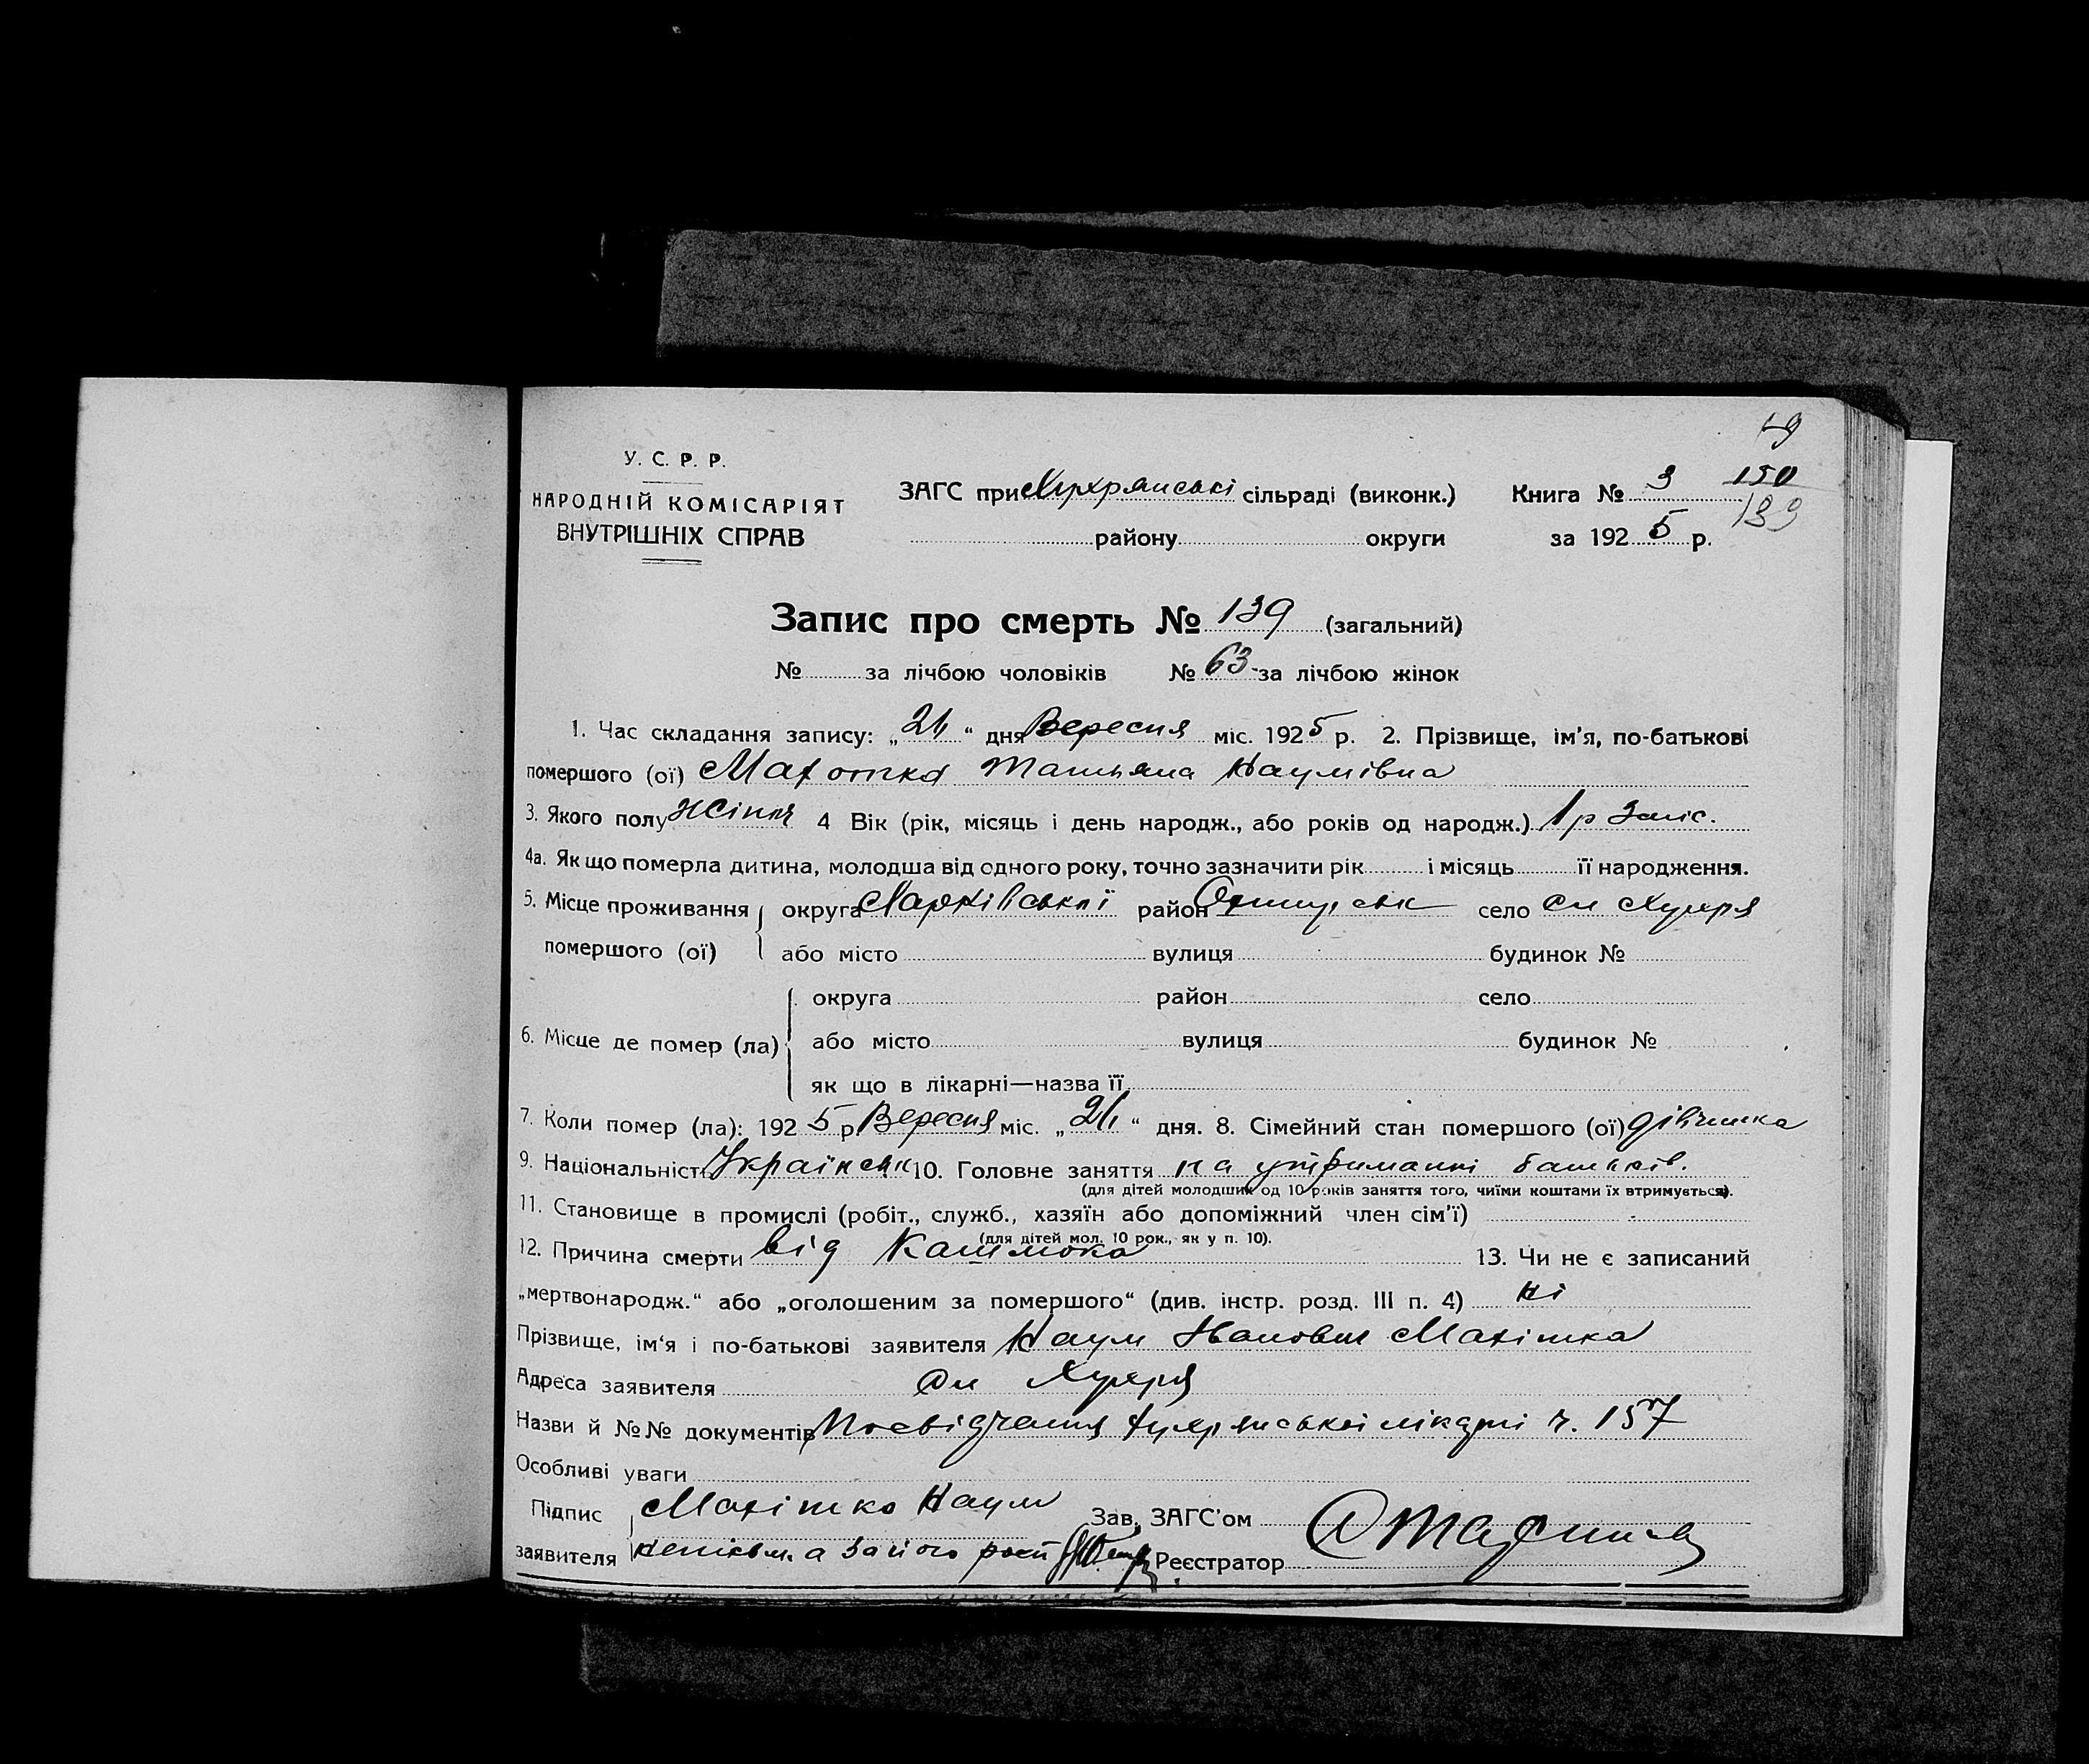 19
У. С. Р. Р.
НАРОДНІЙ КОМІСАРІЯТ
ВНУТРІШНІХ СПРАВ
ЗАГС при Хухрянські сільраді (виконк.)
району округи
Книга № 3 150
за 1925 р. 139
Запис про смерть № 139 (загальний)
№ за лічбою чоловіків № 63 за лічбою жінок
1. Час складання запису: „24“ дня Вересня міс. 1925 р. 2. Прізвище, ім'я, по-батькові
помершого (ої) Махотка Татьяна Наумівна
3. Якого полу жіноч 4 Вік (рік, місяць і день народж., або років од народж.) 1 р 3 міс.
4а. Як що померла дитина, молодша від одного року, точно зазначити рік і місяць її народження.
5. Місце проживання округа Харківської район Охтирськ село сл Хухря
помершого (ої) або місто вулиця будинок №
округа район село
6. Місце де помер (ла) або місто вулиця будинок №
як що в лікарні—назва її
7. Коли помер (ла): 1925 р Вересня міс. „24“ дня. 8. Сімейний стан помершого (ої) дівчинка
9. Національність Українськ 10. Головне заняття на утриманні батьків.
(для дітей молодших од 10 років заняття того, чиїми коштами їх втримується).
11. Становище в промислі (робіт., служб., хазяїн або допоміжний член сім'ї)
(для дітей мол. 10 рок., як у п. 10).
12. Причина смерти від Кашлюка 13. Чи не є записаний
„мертвонародж.“ або „оголошеним за помершого“ (див. інстр. розд. III п. 4) ні
Прізвище, ім'я і по-батькові заявителя Наум Іванович Махітка
Адреса заявителя сл Хухря
Назви й №№ документів Посвідчення Хухрянської лікарні ч. 157
Особливі уваги
Підпис Махітко Наум Зав. ЗАГС'ом
заявителя неписьм. а за його розп Реєстратор